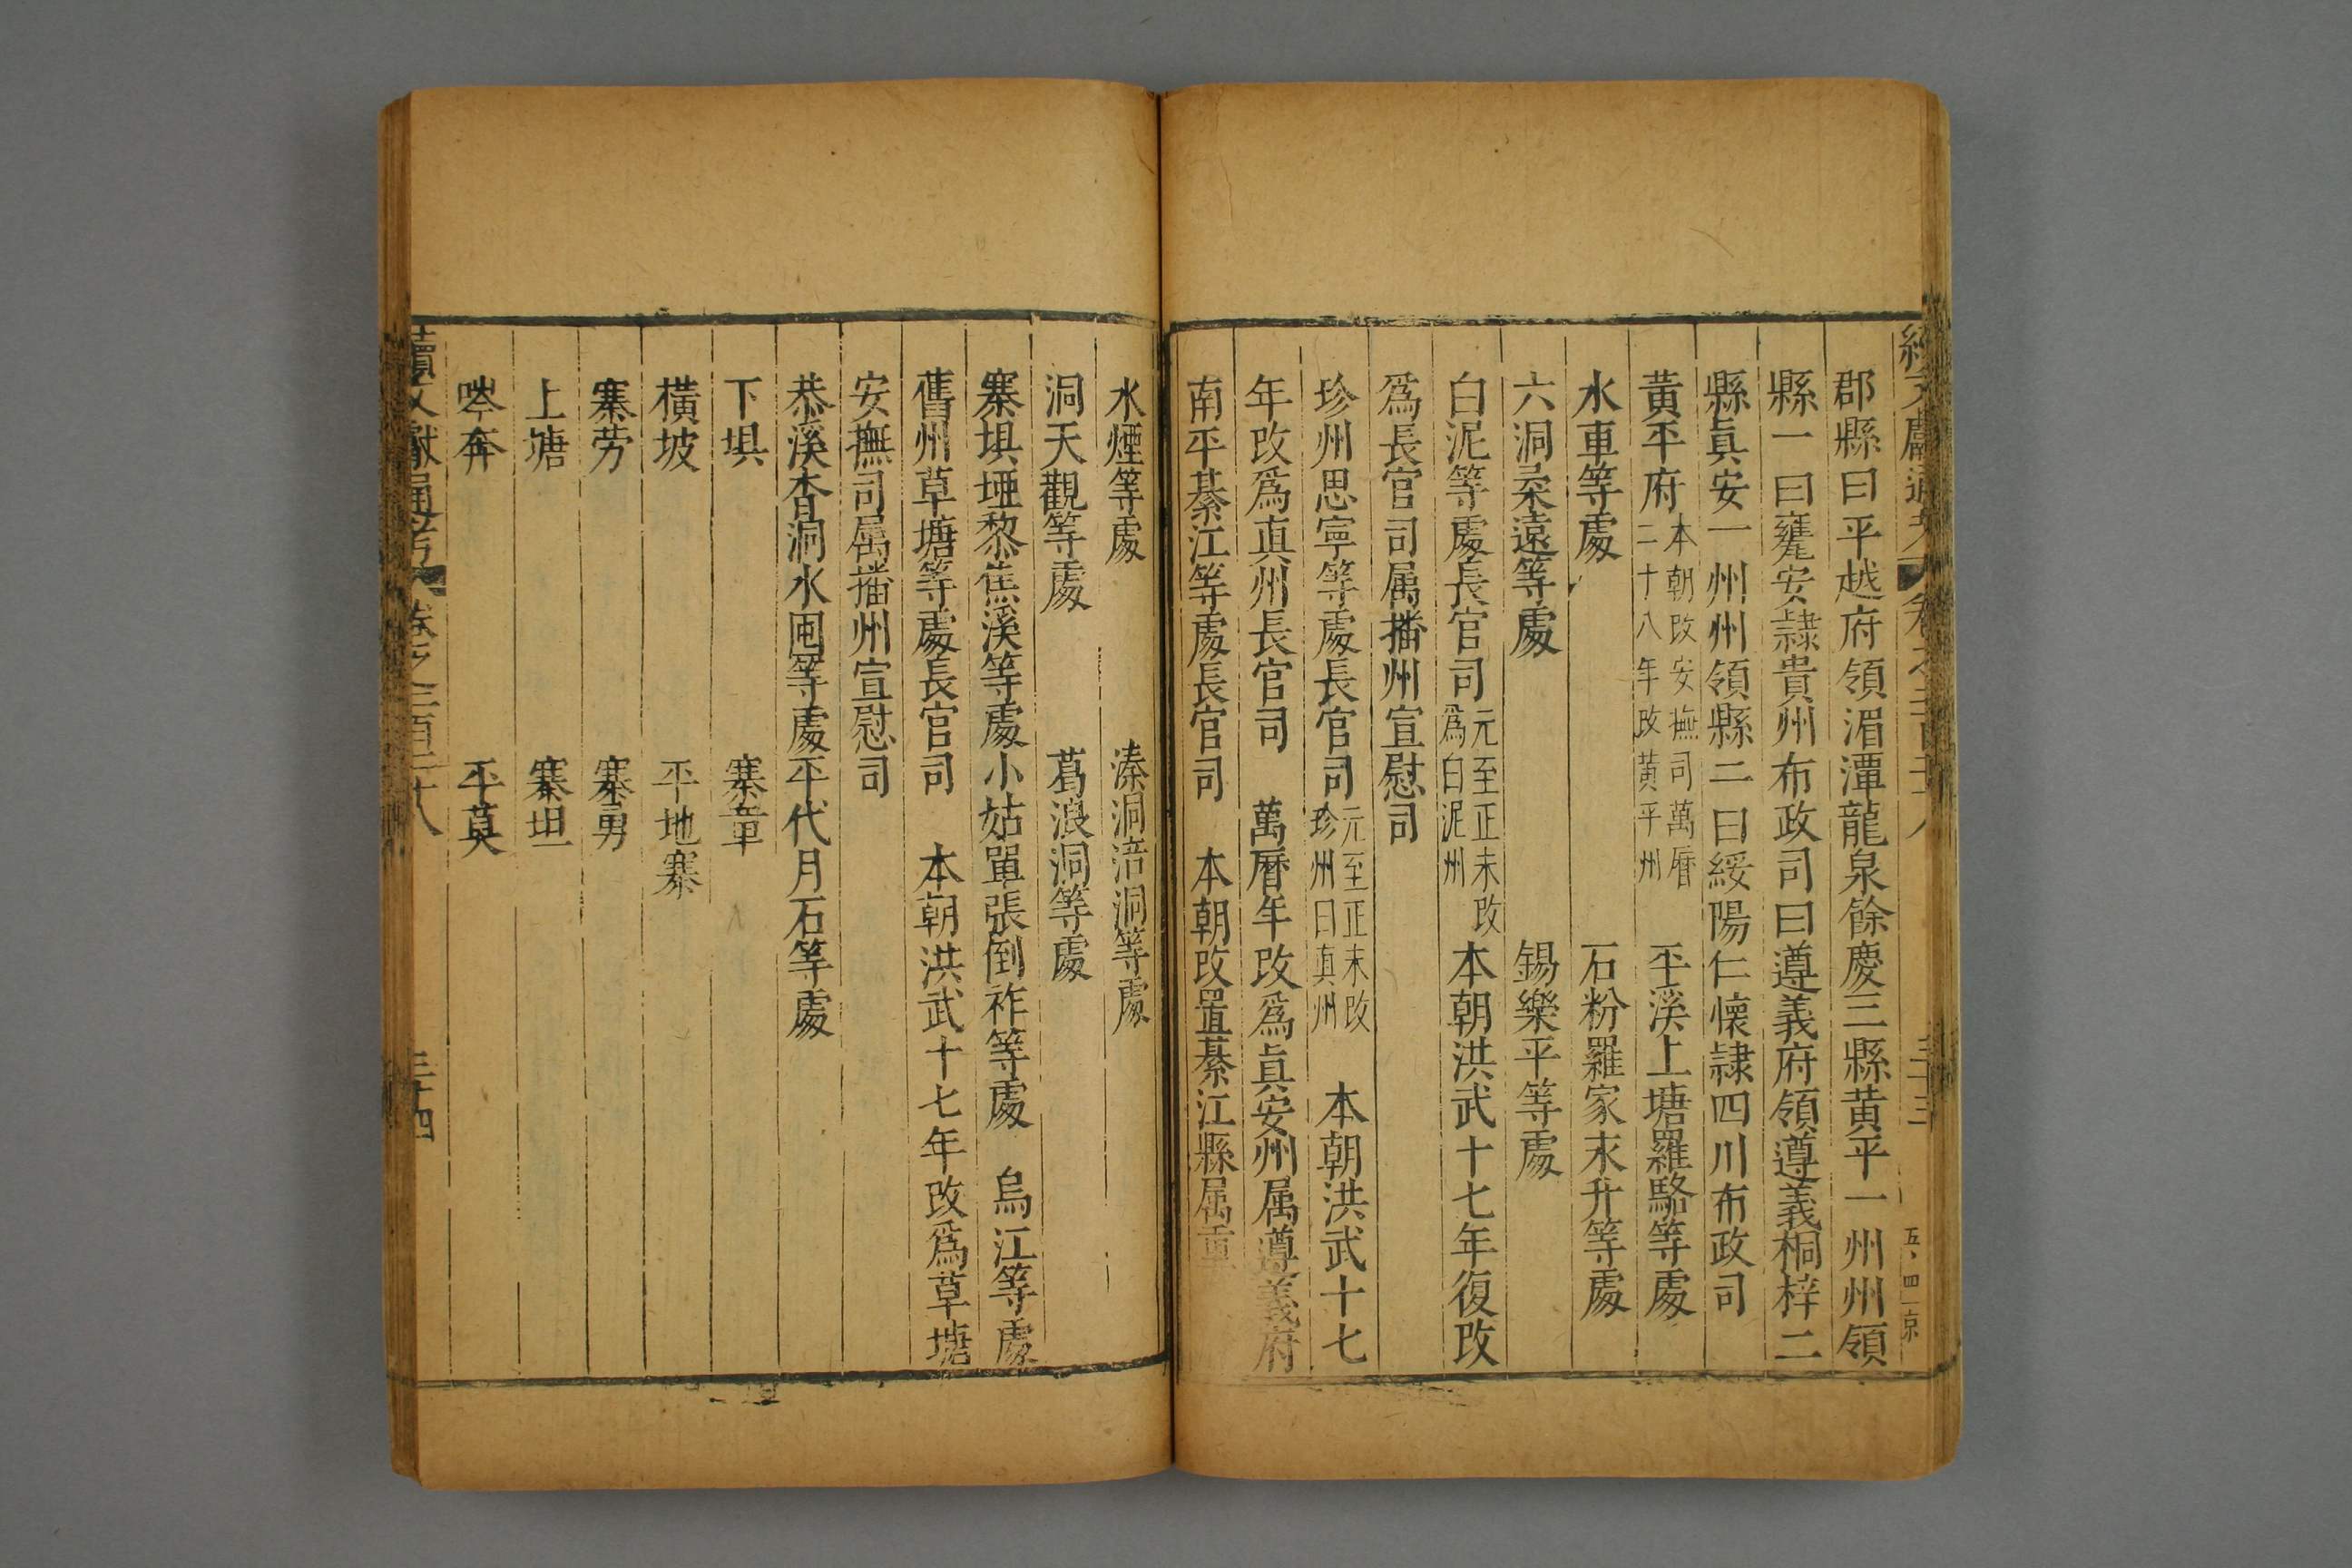 郡縣曰平越府領湄潭龍泉餘慶三縣黄平一州州領
縣一曰甕安隷貴州布政司曰遵義府領遵義桐梓二
縣眞安一州州領縣二曰綏陽仁懐隷四川布政司
黄平府本朝改安撫司萬曆二十八年改黄平州 平溪上塘羅駱等處
水車等處 石粉羅家末升等處
六洞柔遠等處 錫樂平等處
白泥等處長官司元至正末改爲白泥州 本朝洪武十七年復改
爲長官司属播州宣慰司
珍州思寧等處長官司元至正末改珍州曰真州 本朝洪武十七
年改爲真州長官司 萬曆年改爲眞安州属遵義府
南平綦江等處長官司 本朝改置綦江縣属重
水煙等處 溱洞涪洞等處
洞天觀等處 葛浪洞等處
寨垻埡黎焦溪等處小姑單張倒祚等處 烏江等處
舊州草塘等處長官司 本朝洪武十七年改爲草塘
安撫司属播州宣慰司
恭溪杳洞水囤等處平代月石等處
下垻 寨章
横坡 平地寨
寨劳 寨勇
上塘 寨坦
嶅奔 平莫
續文獻通考 卷之二百三十八 三十四